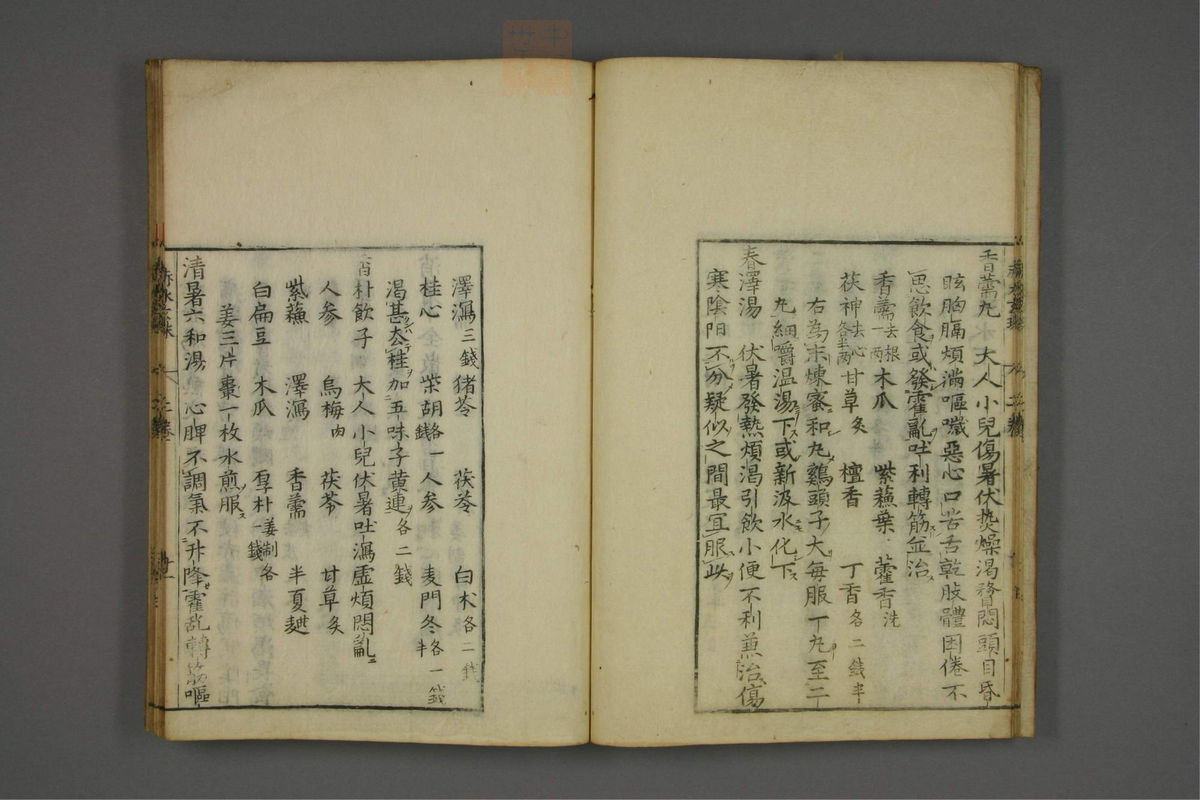 香薷丸 大人小兒傷暑伏熱燥渴瞀悶頭目昏
眩胸膈煩滿嘔噦惡心口苦舌乾肢體困倦不
思飲食或發霍亂吐利轉筋並治
香薷去根一兩 木瓜 紫蘇葉 藿香洗
茯神去心各半兩 甘草炙 檀香 丁香各二錢半
右為末煉蜜和丸雞頭子大每服一丸至二
丸細嚼溫湯下或新汲水化下
春澤湯 伏暑發熱煩渴引飲小便不利兼治傷
寒陰陽不分疑似之間最宜服此
澤瀉三錢 猪苓 茯苓 白术各二錢
桂心 柴胡各一錢 人參 麦門冬各一錢半
渴甚去桂加五味子黄連各二錢
香朴飲子 大人小兒伏暑吐瀉虛煩悶亂
人參 烏梅肉 茯苓 甘草炙
紫蘇 澤瀉 香薷 半夏麯
白扁豆 木瓜 厚朴姜制各一錢
姜三片棗一枚水煎服
清暑六和湯 心脾不調氣不升降霍乱轉筋嘔